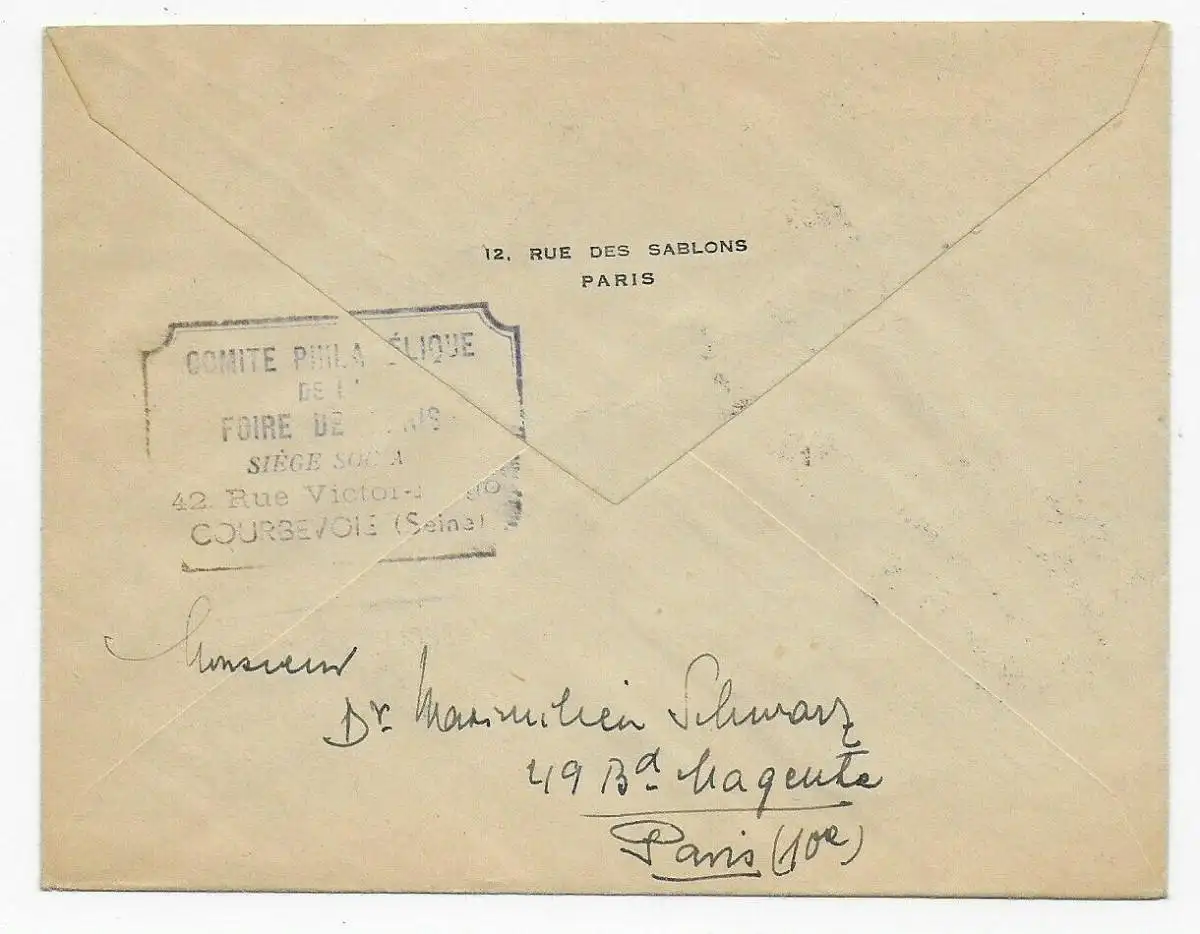 12, RUE DES SABLONS
PARIS
COMITE PHILA ÉLIQUE
DE L'
FOIRE DE
SIÈGE
42 Rue Victor-
COURBEVOIE (Seine)
Monsieur
Dr. Maximilien Schwarz
49 Bd. Magenta
Paris (10e)